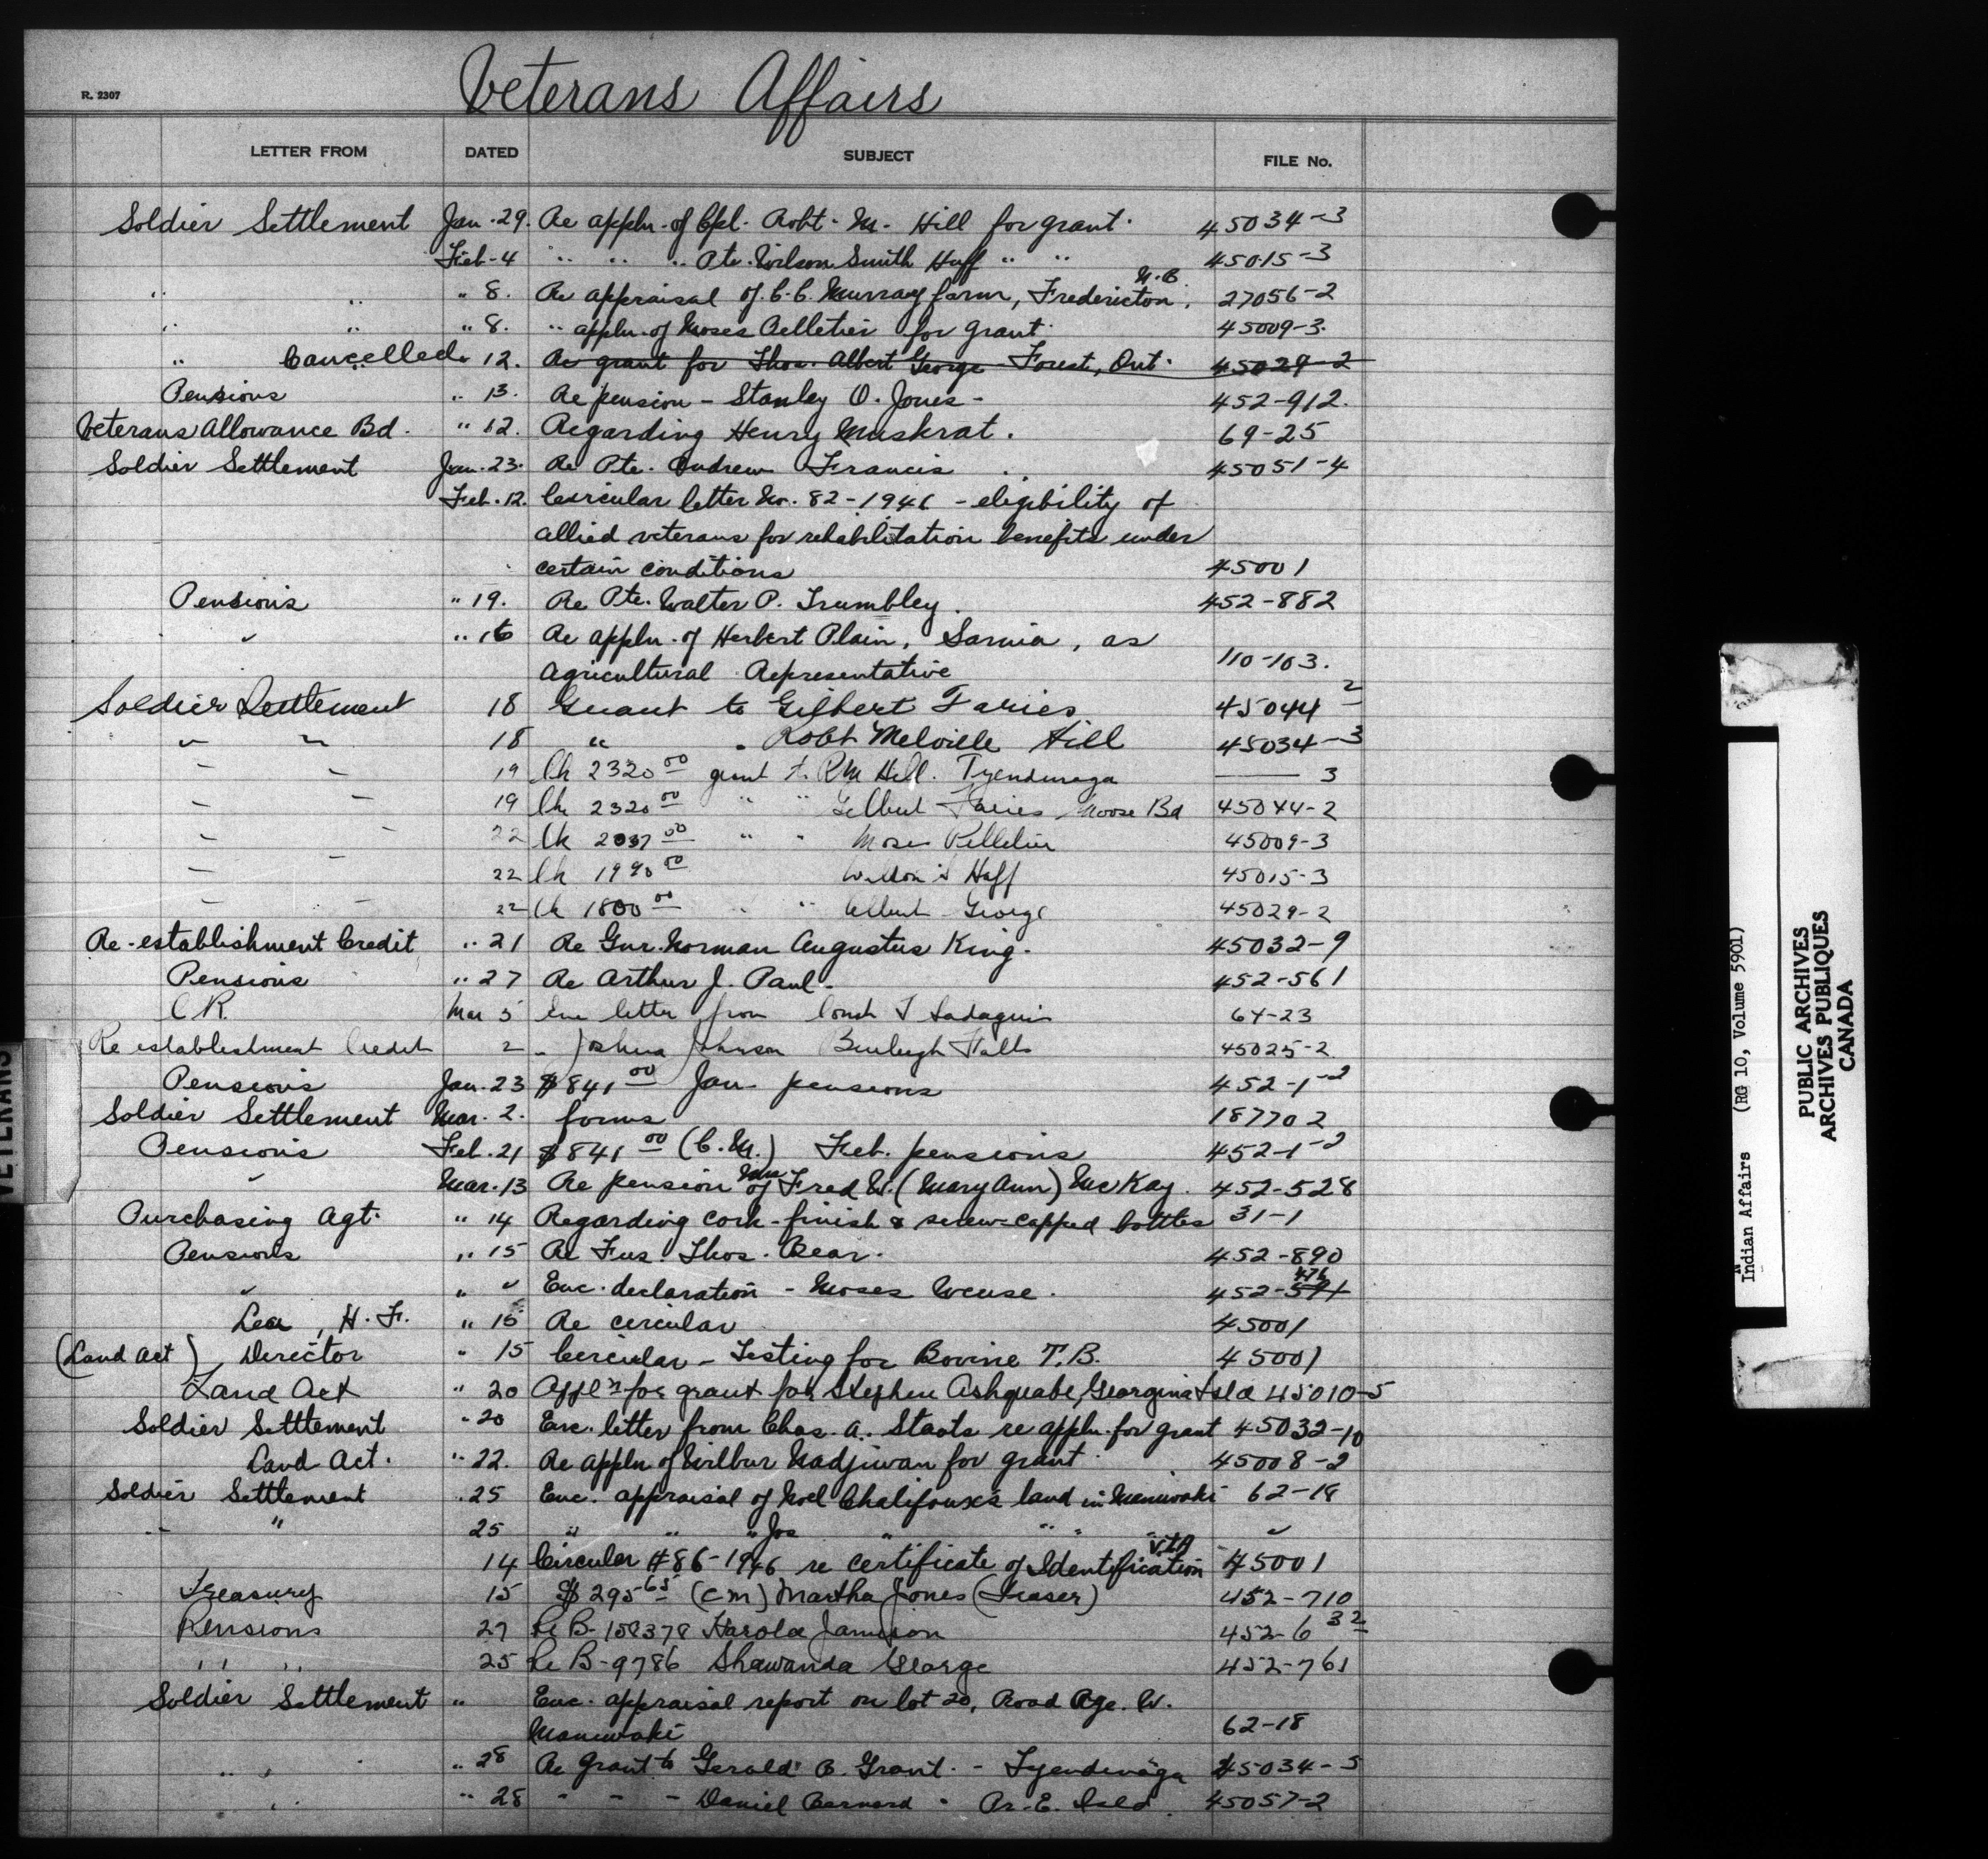 Veterans Affairs
R. 2307
LETTER FROM DATED SUBJECT FILE No.
Soldier Settlement Jan. 29. Re appln. of Cpl. Robt. M. Hill for grant. 45034-3
Feb. 4 " " " Pte. Wilson Smith Huff " " 45015-3
" " " 8. Re appraisal of C. C. Murray farm, Fredericton, N.B. 27056-2
" " " 8. " appln. of Moses Pelletier for grant 45009-3.
" Cancelled " 12. Re grant for Thos. Albert George Forest, Ont. 45029-2
Pensions " 13. Re pension - Stanley O. Jones - 452-912.
Veterans Allowance Bd. " 12. Regarding Henry Muskrat. 69-25
Soldier Settlement Jan. 23. Re Pte. Andrew Francis 45051-4
Feb. 12. Circular letter No. 82-1946 - eligibility of
allied veterans for rehabilitation benefits under
certain conditions 45001
Pensions " 19. Re Pte. Walter P. Trumbley. 452-882
" " 16 Re appln. of Herbert Plain, Sarnia, as
Agricultural Representative 110-103.
Soldier Settlement 18 Grant to Gilbert Faries 45044-2
" " 18 " " Robt Melville Hill 45034-3
" " 19 Ch 2320 00 grant to RM Hill. Tyendinaga — 3
" " 19 Ch 2320 00 " " Gilbert Faries Moose Bd 45044-2
" " 22 Ch 2037 00 " " Moses Pelletier 45009-3
" " 22 Ch 1990 00 Wilson S Huff 45015-3
" " 22 Ch 1800 00 " " Albert George 45029-2
Re-establishment Credit " 21 Re Gnr. Norman Augustus King. 45032-9
Pensions " 27 Re Arthur J. Paul - 452-561
C R. Mar 5 Enc letter from 64-23
Re establishment Credit 2 " Joshua Johnson Burleigh Falls 45025-2
Pensions Jan. 23 $841 00 Jan pensions 452-1-2
Soldier Settlement Mar. 2. forms 18770 2
Pensions Feb. 21 $841 00 (C.M.) Feb. pensions 452-1-2
" Mar. 13 Re pension of Mrs Fred W. (Mary Ann) McKay. 452-528
Purchasing Agt. " 14 Regarding cork-finish & screw-capped bottles 31-1
Pensions " 15 Re Fus. Thos. Bear. 452-890
" " " Enc. declaration - Moses 452-591 476
Lea, H. F. " 15 Re circular 45001
(Land Act) Director " 15 Circular - Testing for Bovine T.B. 45001
Land Act " 20 Appl'n for grant for Stephen Ashquabe, Georgina Isld 45010-5
Soldier Settlement " 20 Enc. letter from Chas. A. Staats re appln. for grant 45032-10
Land Act. " 22. Re appln of Wilbur Nadjiwan for grant 45008-2
Soldier Settlement " 25 Enc. appraisal of Noel Chalifoux's land in Maniwaki 62-18
" " 25 " " " Jos " " " "
14 Circular #86-1946 re Certificate of Identification VLA 45001
Treasury 15 $295 65 (CM) Martha Jones (Fraser) 452-710
Pensions 27 Re B-158378 Harold Jamieson 452-6 32
" " 25 Re B-9786 Shawanda George 452-761
Soldier Settlement " Enc. appraisal report on lot 20, Road Rge. W.
Maniwaki 62-18
" " " 28 Re Grant to Gerald B. Grant. - Tyendinaga 45034-5
" " 28 " " " Daniel Bernard " Pr. E. Isld. 45057-2
VETERANS
Indian Affairs (RG 10, Volume 5901)
PUBLIC ARCHIVES
ARCHIVES PUBLIQUES
CANADA